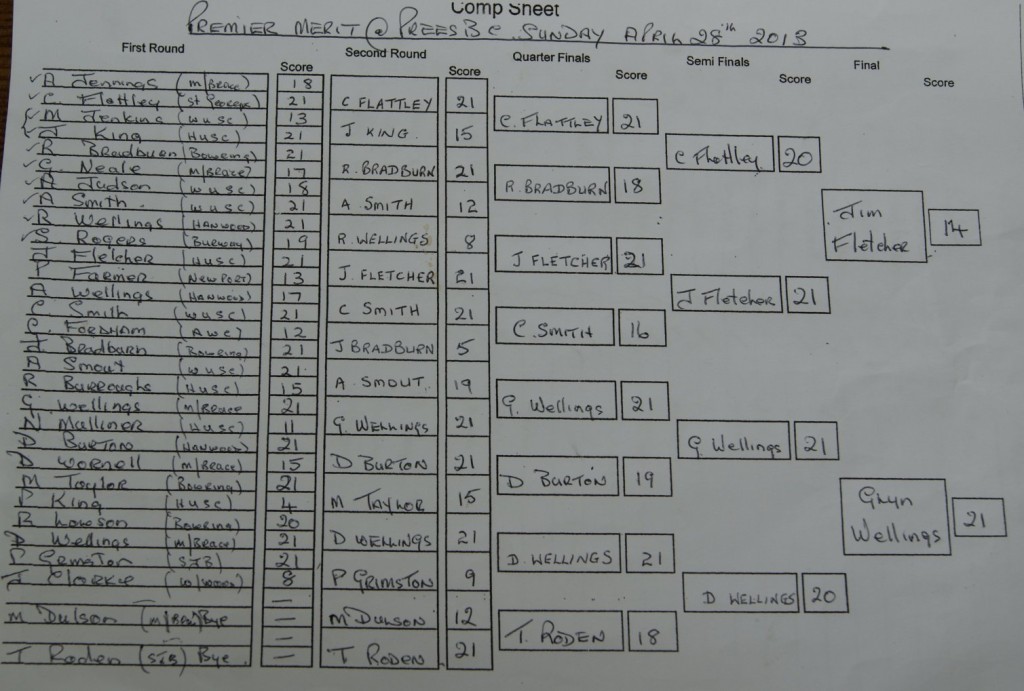 Comp Sheet
PREMIER MERIT @ PREES B C. SUNDAY APRIL 28th 2013
First Round Score Second Round Score Quarter Finals Score Semi Finals Score Final Score
A Jennings (M/Brace) 18
C. Flattley (St Georges) 21
C FLATTLEY 21
M Jenkins (WUSC) 13
C. FLATTLEY 21
J King (HUSC) 21
J KING. 15
R Bradburn (Bowring) 21
C Flattley 20
C. Neale (M/Brace) 17
R. BRADBURN 21
A Judson (WUSC) 18
R. BRADBURN 18
A Smith. (WUSC) 21
A SMITH 12
R Wellings (HANWOOD) 21
Jim Fletcher 14
S. Rogers (Burway) 19
R. WELLINGS 8
J Fletcher (HUSC) 21
J FLETCHER 21
P Farmer (NEWPORT) 13
J. FLETCHER 21
A Wellings (Hanwood) 17
J Fletcher 21
C Smith (WUSC) 21
C SMITH 21
G. FORDHAM (AWC) 12
C. SMITH 16
J Bradburn (Bowring) 21
J BRADBURN 5
A Smout (WUSC) 21
R Burroughs (HUSC) 15
A. SMOUT. 19
G. Wellings (M/Brace 21
G. Wellings 21
N Mulliner (HUSC) 11
G. WELLINGS 21
D BURTON (HANWOOD) 21
G Wellings 21
D Wornell (M/Brace) 15
D BURTON 21
M Taylor (Bowring) 21
D BURTON 19
P King (HUSC) 4
M TAYLOR 15
R Lowson (Bowring) 20
Glyn Wellings 21
D Wellings (M/Brace) 21
D WELLINGS 21
P (SJB) 21
D. WELLINGS 21
J Clarkie 8
P GRIMSTON 9
D WELLINGS 20
M Dulson Bye —
M DULSON 12
T. RODEN 18
T Roden (SJB) Bye —
T RODEN 21